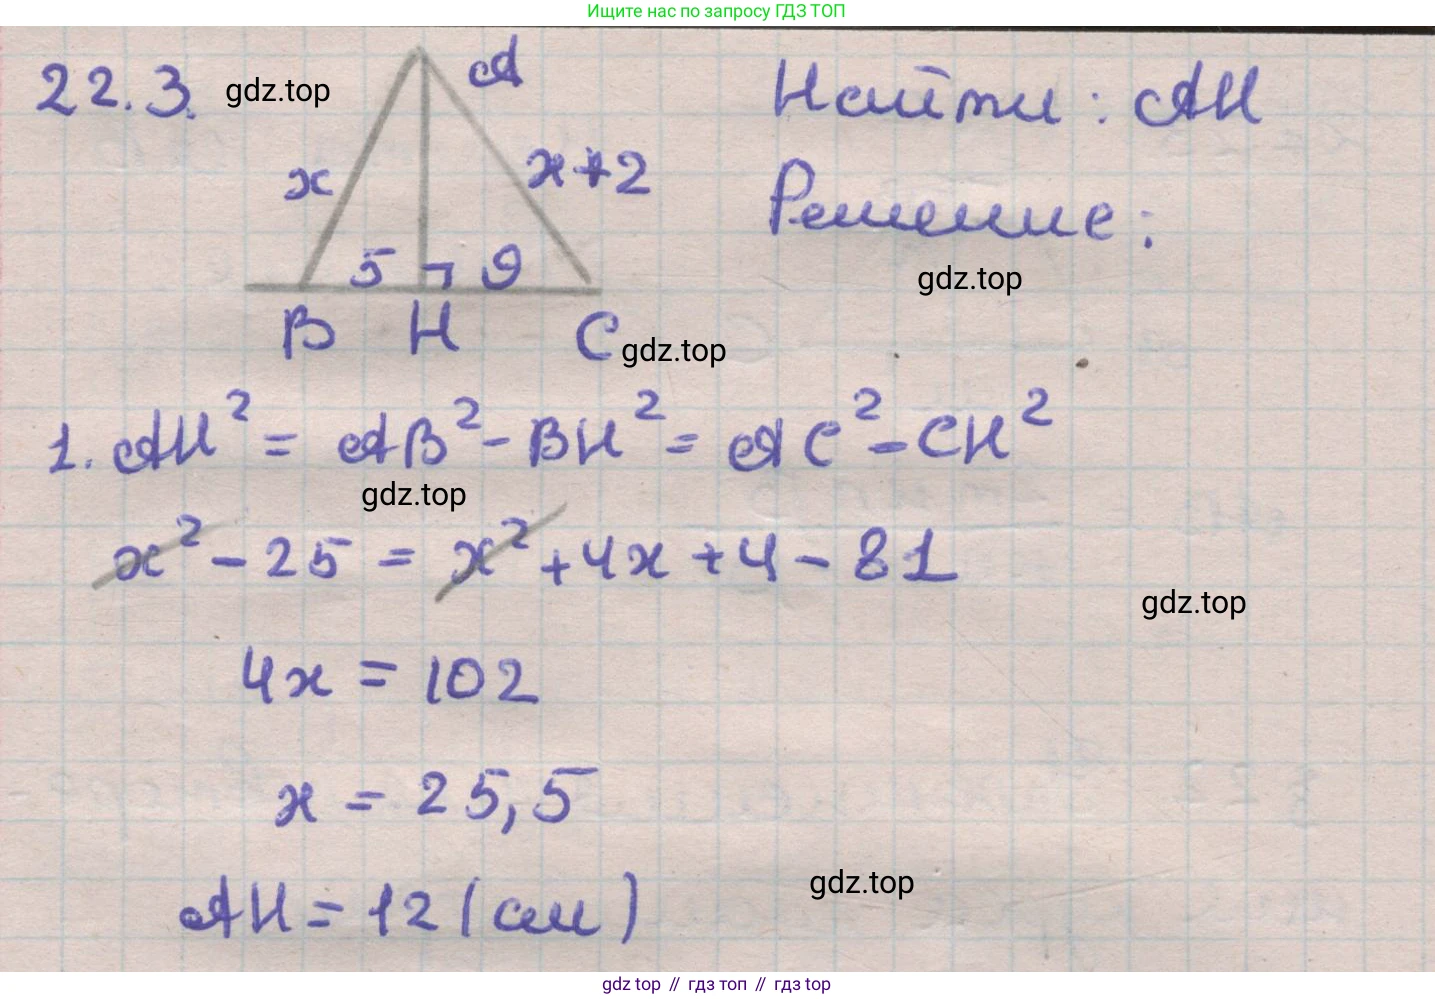 Ищите нас по запросу ГДЗ ТОП
22.3.
gdz.top
A
Найти: AH
x
x+2
Решение:
5
9
gdz.top
B H C
gdz.top
1. AH² = AB² - BH² = AC² - CH²
gdz.top
x² - 25 = x² + 4x + 4 - 81
gdz.top
4x = 102
x = 25,5
gdz.top
AH = 12 (см)
gdz.top // гдз топ // гдз top